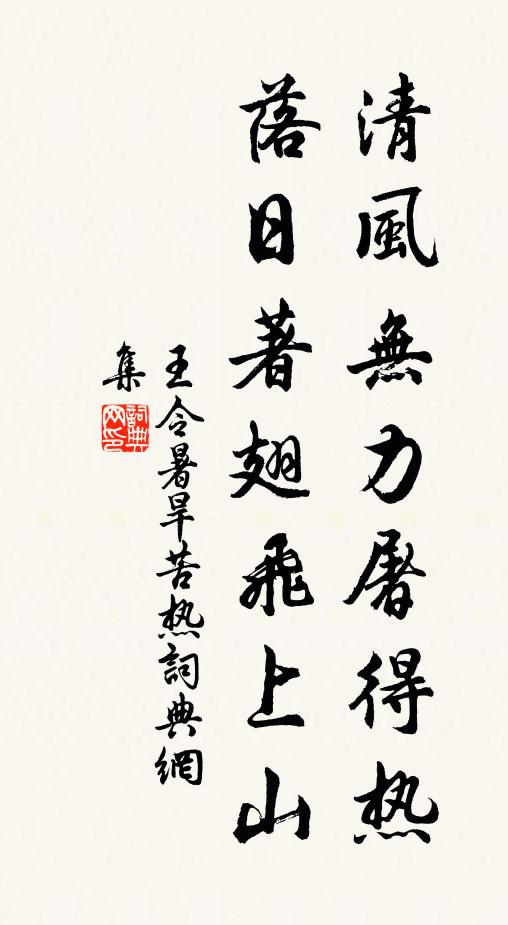 清風無力屠得热
落日著翅飛上山
王令暑旱苦热詞典網
集
詞典網印